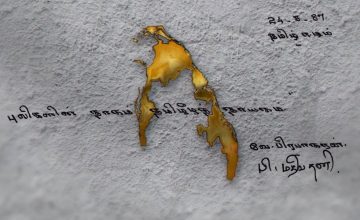 24-5-87
தமிழீழம்
புலிகளின் தாகம் தமிழீழத் தாயகம்
வே. பிரபாகரன்.